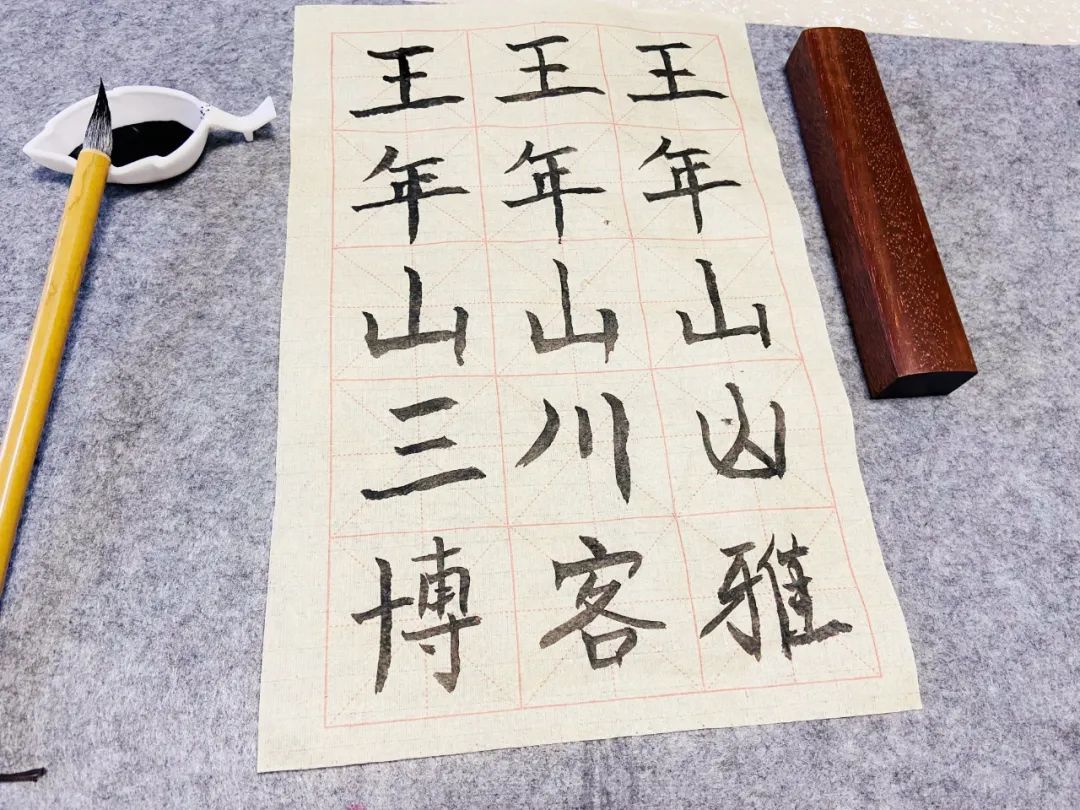 王王王
年年年
山山山
三川凶
博客雅